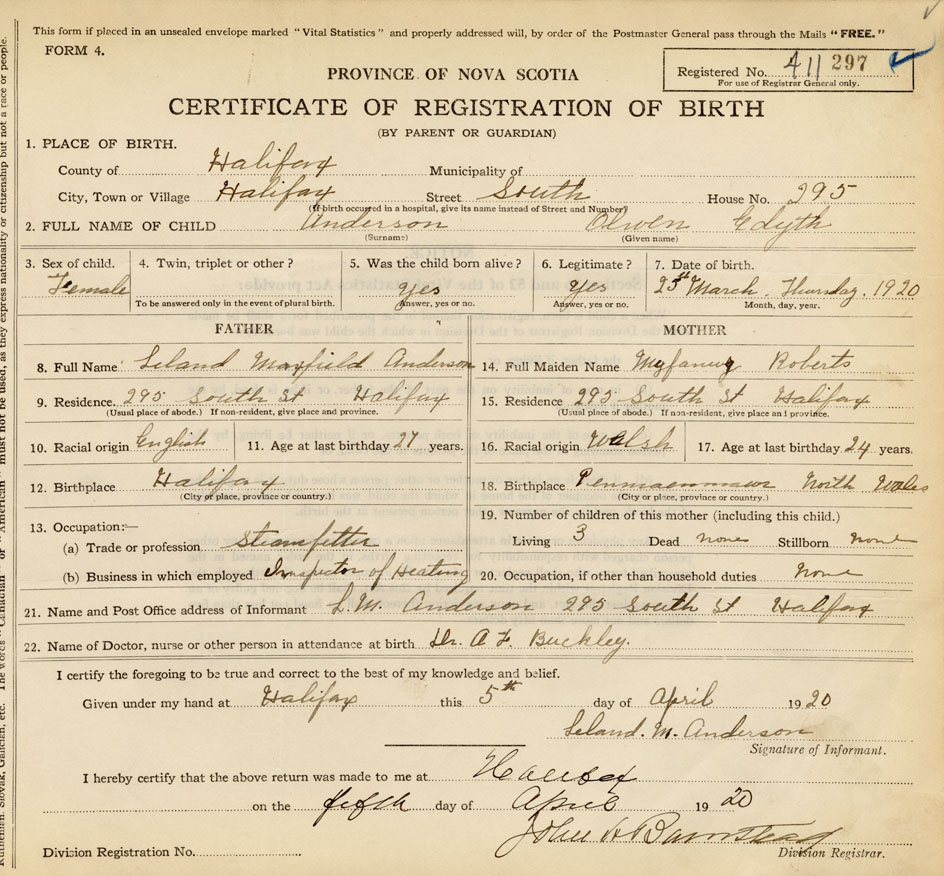 This form if placed in an unsealed envelope marked "Vital Statistics" and properly addressed will, by order of the Postmaster General pass through the Mails "FREE."
FORM 4.
PROVINCE OF NOVA SCOTIA
Registered No. 411 297
For use of Registrar General only.
CERTIFICATE OF REGISTRATION OF BIRTH
(BY PARENT OR GUARDIAN)
1. PLACE OF BIRTH.
County of Halifax Municipality of
City, Town or Village Halifax Street South House No. 295
(If birth occurred in a hospital, give its name instead of Street and Number)
2. FULL NAME OF CHILD Anderson Olwen Edyth
(Surname) (Given name)
3. Sex of child. 4. Twin, triplet or other? 5. Was the child born alive? 6. Legitimate? 7. Date of birth.
Female yes yes 25th March Thursday. 1920
To be answered only in the event of plural birth. Answer, yes or no. Answer, yes or no. Month, day, year.
FATHER MOTHER
8. Full Name Leland Mayfield Anderson 14. Full Maiden Name Myfanwy Roberts
9. Residence. 295 South St Halifax 15. Residence 295 South St Halifax
(Usual place of abode.) If non-resident, give place and province. (Usual place of abode.) If non-resident, give place and province.
10. Racial origin English 11. Age at last birthday 27 years. 16. Racial origin Welsh 17. Age at last birthday 24 years.
12. Birthplace Halifax 18. Birthplace Penmaenmawr North Wales
(City or place, province or country.) (City or place, province or country.)
13. Occupation:— 19. Number of children of this mother (including this child.)
(a) Trade or profession Steamfitter Living 3 Dead none Stillborn none
(b) Business in which employed Inspector of Heating 20. Occupation, if other than household duties None
21. Name and Post Office address of Informant L. M. Anderson 295 South St Halifax
22. Name of Doctor, nurse or other person in attendance at birth Dr. A F. Buckley.
I certify the foregoing to be true and correct to the best of my knowledge and belief.
Given under my hand at Halifax this 5th day of April 1920
Leland. M. Anderson
Signature of Informant.
I hereby certify that the above return was made to me at Halifax
on the fifth day of April 1920
John A Barnstead
Division Registrar.
Division Registration No.